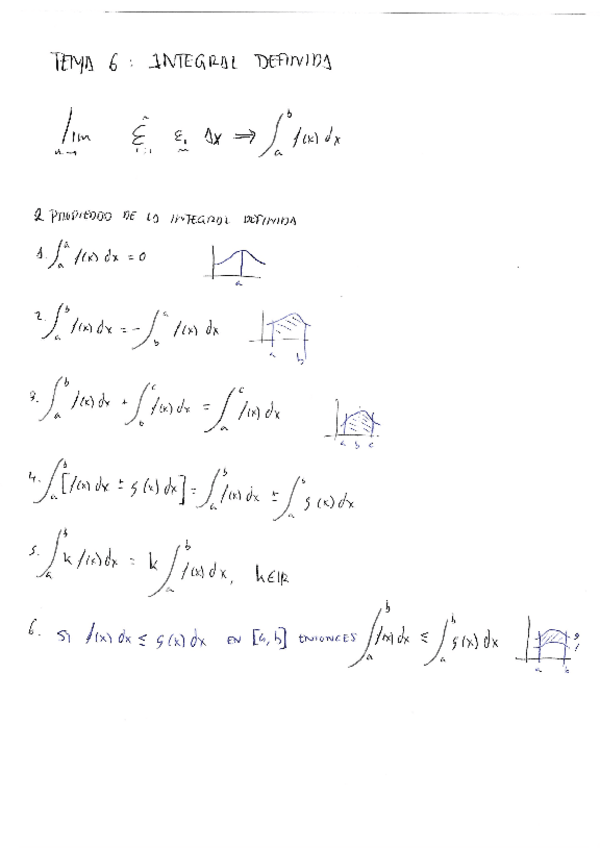 TEMA 6: INTEGRAL DEFINIDA
lim Σ εᵢ Δx ⇒ ∫ₐᵇ f(x) dx
2 PROPIEDAD DE LA INTEGRAL DEFINIDA
1. ∫ₐᵃ f(x) dx = 0
a
2. ∫ₐᵇ f(x) dx = - ∫_b^a f(x) dx
a b
3. ∫ₐᵇ f(x) dx + ∫_b^c f(x) dx = ∫ₐᶜ f(x) dx
a b c
4. ∫ₐᵇ [f(x) dx ± g(x) dx] = ∫ₐᵇ f(x) dx ± ∫ₐᵇ g(x) dx
5. ∫ₐᵇ k f(x) dx = k ∫ₐᵇ f(x) dx, k∈ℝ
6. SI f(x) dx ≤ g(x) dx EN [a, b] ENTONCES ∫ₐᵇ f(x) dx ≤ ∫ₐᵇ g(x) dx
g
f
a b